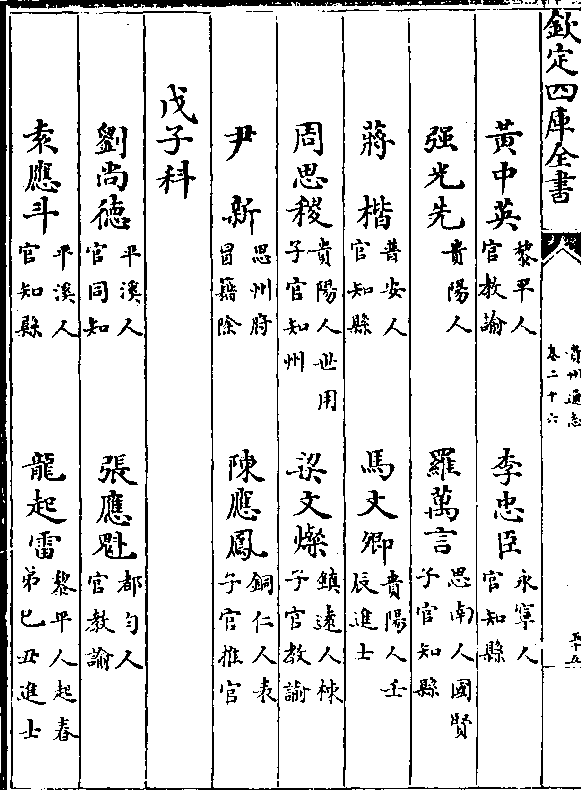 欽定四庫全書
貴州通志
卷二十六
五十五
黃中英 黎平人官教諭 李忠臣 永寧人官知縣
强光先 貴陽人 羅萬言 思南人國賢子官知縣
蔣楷 普安人官知縣 馬文卿 貴陽人壬辰進士
周思稷 貴陽人世用子官知州 梁文燦 鎮遠人棟子官教諭
尹新 思州府冒籍除 陳應鳳 銅仁人表子官推官
戊子科
劉尚德 平溪人官同知 張應魁 都勻人官教諭
袁應斗 平溪人官知縣 龍起雷 黎平人起春弟己丑進士